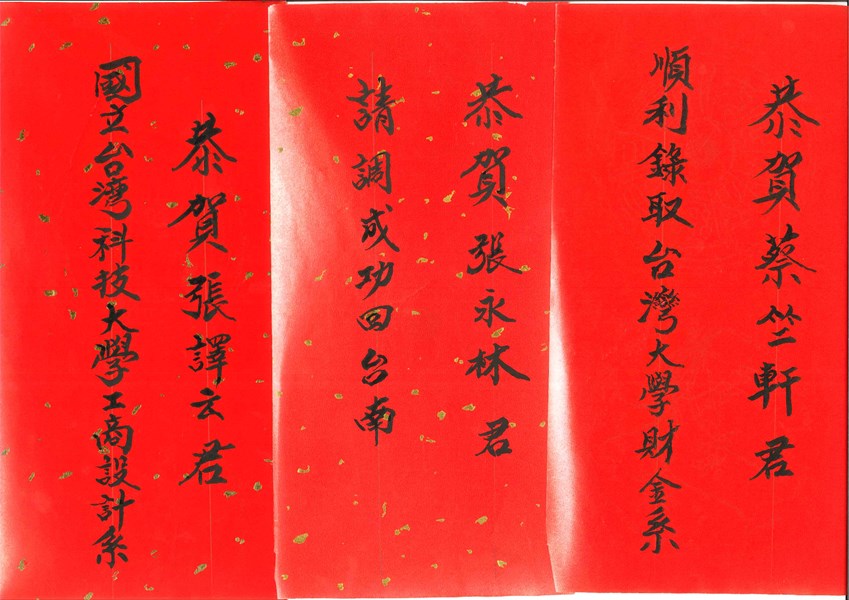 恭賀蔡竺軒君
順利錄取台灣大學財金系
恭賀張永林君
請調成功回台南
恭賀張譯云君
國立台灣科技大學工商設計系